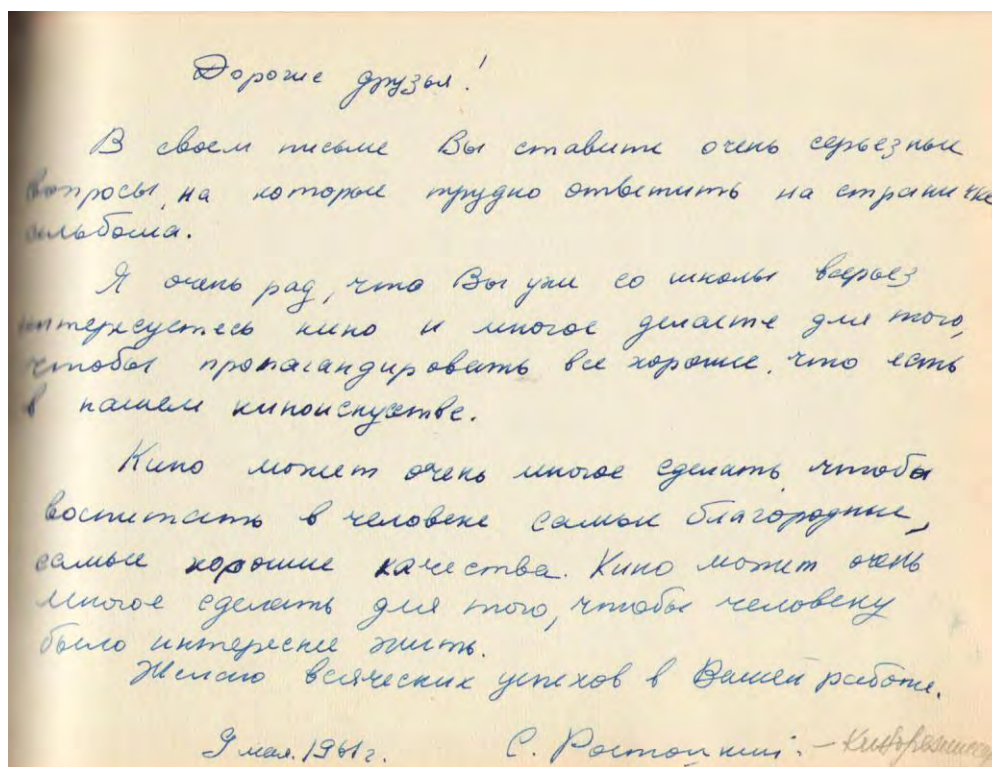 Дорогие друзья!
В своем письме Вы ставите очень серьезные
вопросы, на которые трудно ответить на страничке
альбома.
Я очень рад, что Вы уже со школы всерьез
интересуетесь кино и многое делаете для того,
чтобы пропагандировать все хорошее, что есть
в нашем киноискусстве.
Кино может очень многое сделать, чтобы
воспитать в человеке самые благородные,
самые хорошие качества. Кино может очень
многое сделать для того, чтобы человеку
было интереснее жить.
Желаю всяческих успехов в Вашей работе.
9 мая. 1961 г. С. Ростоцкий. – Кинорежиссер